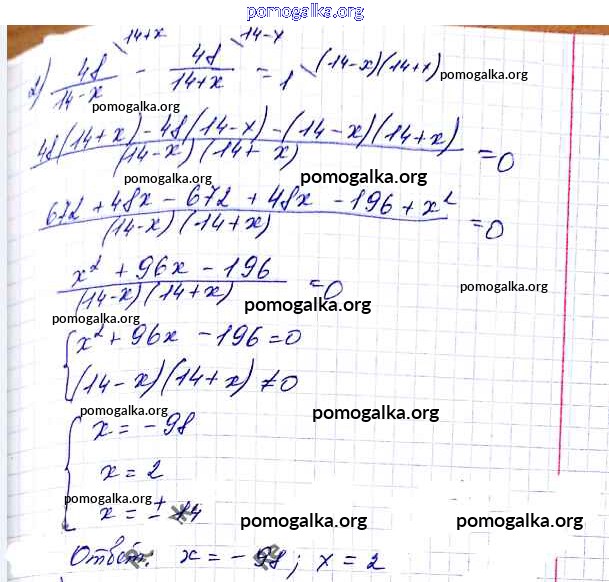 pomogalka.org
2) 48/(14-x) \14+x - 48/(14+x) \14-x = 1 \(14-x)(14+x)
pomogalka.org
pomogalka.org
(48(14+x) - 48(14-x) - (14-x)(14+x))/((14-x)(14+x)) = 0
pomogalka.org
pomogalka.org
(672 + 48x - 672 + 48x - 196 + x²)/((14-x)(14+x)) = 0
pomogalka.org
(x² + 96x - 196)/((14-x)(14+x)) = 0
pomogalka.org
pomogalka.org
pomogalka.org
{ x² + 96x - 196 = 0
(14-x)(14+x) ≠ 0
pomogalka.org
pomogalka.org
{ x = -98
x = 2
pomogalka.org
x = ± 14
pomogalka.org
pomogalka.org
Ответ: x = -98; x = 2